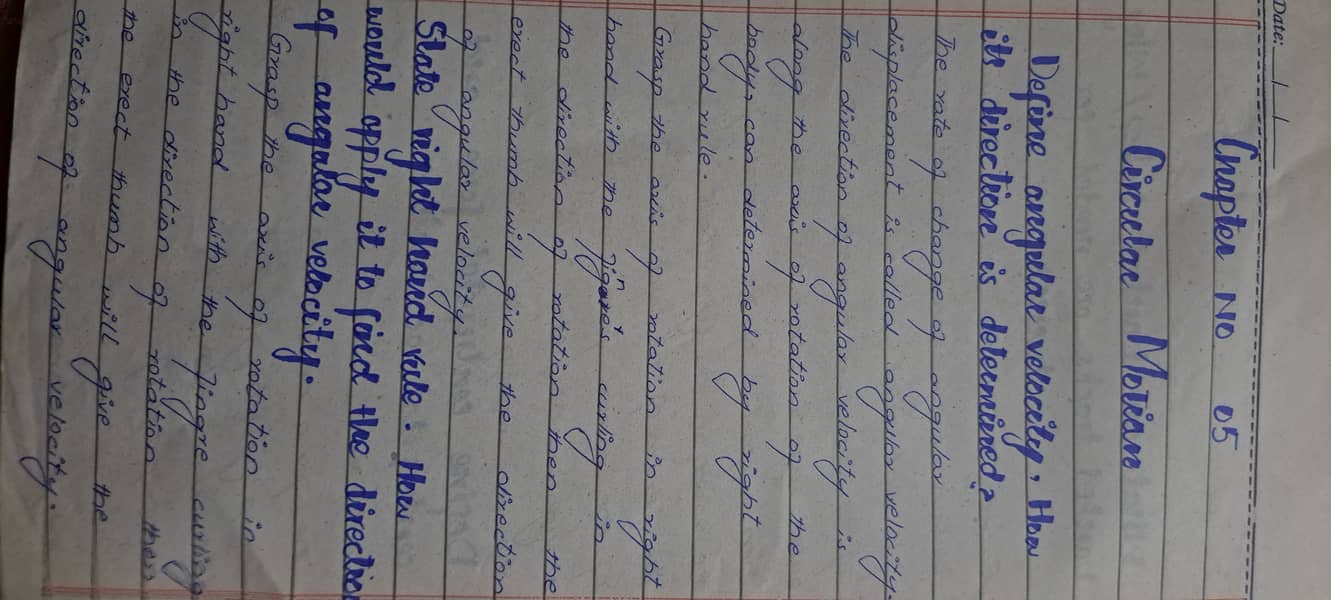 Date: / /
Chapter No 05
Circular Motion
Define angular velocity, How
its direction is determined?
The rate of change of angular
displacement is called angular velocity.
The direction of angular velocity is
along the axis of rotation of the
body, can determined by right
hand rule.
Grasp the axis of rotation in right
hand with the curling in
the direction of rotation then the
erect thumb will give the direction
of angular velocity.
State right hand rule. How
would apply it to find the direction
of angular velocity.
Grasp the axis of rotation in
right hand with the fingre curling
in the direction of rotation then
the erect thumb will give the
direction of angular velocity.